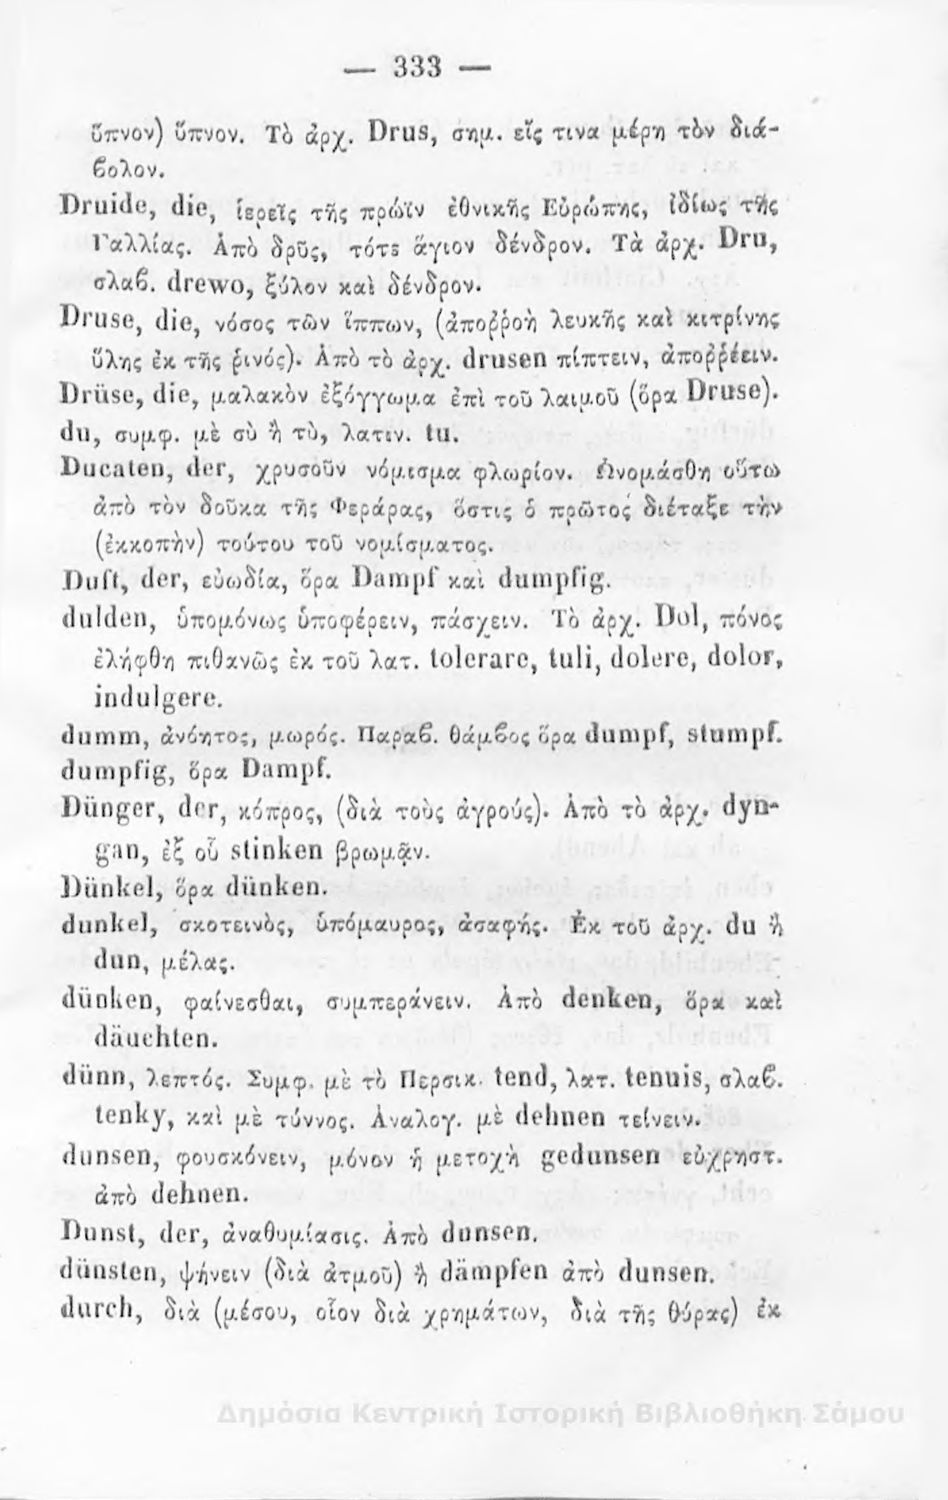 — 333 —
ὕπνον) ὕπνον. Τὸ ἀρχ. Drus, σημ. εἴς τινα μέρη τὸν διά-
ϐολον.
Druide, die, ἱερεῖς τῆς πρώϊν ἐθνικῆς Εὐρώπης, ἰδίως τῆς
Γαλλίας. Ἀπὸ δρῦς, τότε ἅγιον δένδρον. Τὰ ἀρχ. Dru,
σλαϐ. drewo, ξύλον καὶ δένδρον.
Druse, die, νόσος τῶν ἵππων, (ἀποῤῥοὴ λευκῆς καὶ κιτρίνης
ὕλης ἐκ τῆς ῥινός). Ἀπὸ τὸ ἀρχ. drusen πίπτειν, ἀποῤῥέειν.
Drüse, die, μαλακὸν ἐξόγγωμα ἐπὶ τοῦ λαιμοῦ (ὅρα Druse).
du, συμφ. μὲ σὺ ἢ τὺ, λατιν. tu.
Ducaten, der, χρυσοῦν νόμισμα φλωρίον. Ὠνομάσθη οὕτω
ἀπὸ τὸν δοῦκα τῆς Φεράρας, ὅστις ὁ πρῶτος διέταξε τὴν
(ἐκκοπὴν) τούτου τοῦ νομίσματος.
Duft, der, εὐωδία, ὅρα Dampf καὶ dumpfig.
dulden, ὑπομόνως ὑποφέρειν, πάσχειν. Τὸ ἀρχ. Dol, πόνος
ἐλήφθη πιθανῶς ἐκ τοῦ λατ. tolerare, tuli, dolere, dolor,
indulgere.
dumm, ἀνόητος, μωρός. Παραϐ. θάμϐος ὅρα dumpf, stumpf.
dumpfig, ὅρα Dampf.
Dünger, der, κόπρος, (διὰ τοὺς ἀγρούς). Ἀπὸ τὸ ἀρχ. dyn-
gan, ἐξ οὗ stinken βρωμᾷν.
Dünkel, ὅρα dünken.
dunkel, σκοτεινὸς, ὑπόμαυρος, ἀσαφής. Ἐκ τοῦ ἀρχ. du ἢ
dun, μέλας.
dünken, φαίνεσθαι, συμπεράνειν. Ἀπὸ denken, ὅρα καὶ
däuchten.
dünn, λεπτός. Συμφ. μὲ τὸ Περσικ. tend, λατ. tenuis, σλαϐ.
tenky, καὶ μὲ τύννος. Ἀναλογ. μὲ dehnen τείνειν.
dunsen, φουσκόνειν, μόνον ἡ μετοχὴ gedunsen εὐχρηστ.
ἀπὸ dehnen.
Dunst, der, ἀναθυμίασις. Ἀπὸ dunsen.
dünsten, ψήνειν (διὰ ἀτμοῦ) ἢ dämpfen ἀπὸ dunsen.
durch, διὰ (μέσου, οἷον διὰ χρημάτων, διὰ τῆς θύρας) ἐκ
Δημόσια Κεντρική Ιστορική Βιβλιοθήκη Σάμου